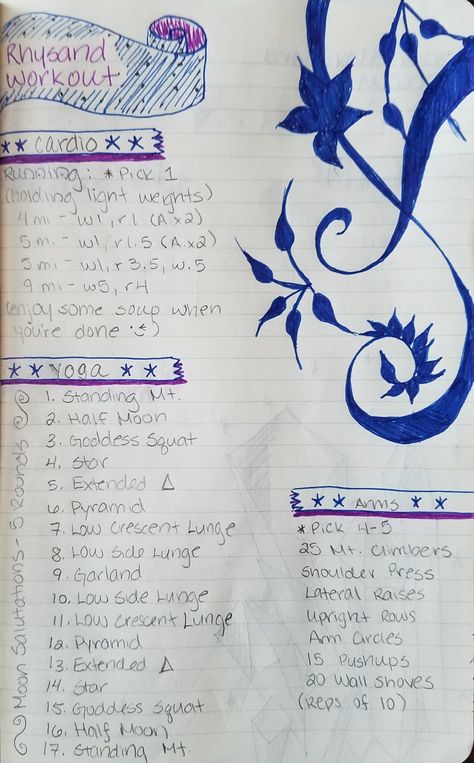 Rhysand
Workout
** Cardio **
Running: *Pick 1
(holding light weights)
4 mi - w1, r1 (A.x2)
5 mi - w1, r1.5 (A.x2)
5 mi - w1, r3.5, w.5
9 mi - w5, r4
(enjoy some soup when
you're done :))
** Yoga **
Moon Salutations - 5 Rounds
1. Standing Mt.
2. Half Moon
3. Goddess Squat
4. Star
5. Extended △
6. Pyramid
7. Low Crescent Lunge
8. Low Side Lunge
9. Garland
10. Low Side Lunge
11. Low Crescent Lunge
12. Pyramid
13. Extended △
14. Star
15. Goddess Squat
16. Half Moon
17. Standing Mt.
** Arms **
*Pick 4-5
25 Mt. Climbers
Shoulder Press
Lateral Raises
Upright Rows
Arm Circles
15 Pushups
20 Wall Shoves
(Reps of 10)